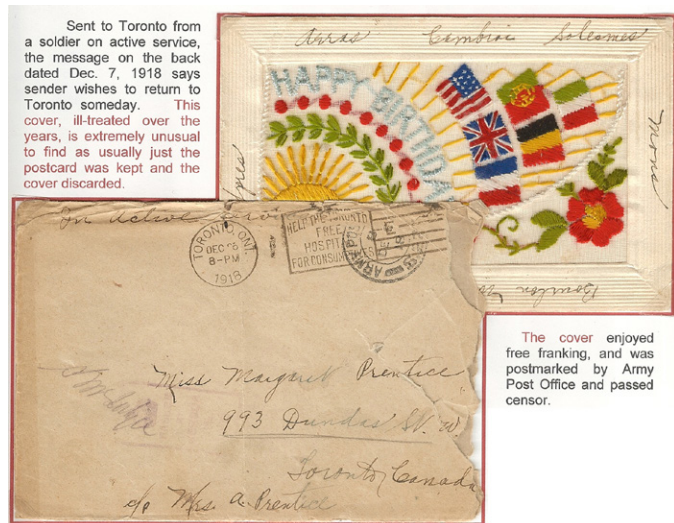 Sent to Toronto from
a soldier on active service,
the message on the back
dated Dec. 7, 1918 says
sender wishes to return to
Toronto someday. This
cover, ill-treated over the
years, is extremely unusual
to find as usually just the
postcard was kept and the
cover discarded.
Arras Cambrai Solesmes
Mons
HAPPY BIRTHDAY
Bourlon
On Active
TORONTO, ONT
DEC 26
8-PM
1918
HELP THE TORONTO
FREE
HOSPITAL
FOR CONSUMPTIVES
ARMY PO
Miss Margaret Prentice
993 Dundas St. W.
Toronto, Canada
c/o Mrs. A. Prentice
The cover enjoyed
free franking, and was
postmarked by Army
Post Office and passed
censor.